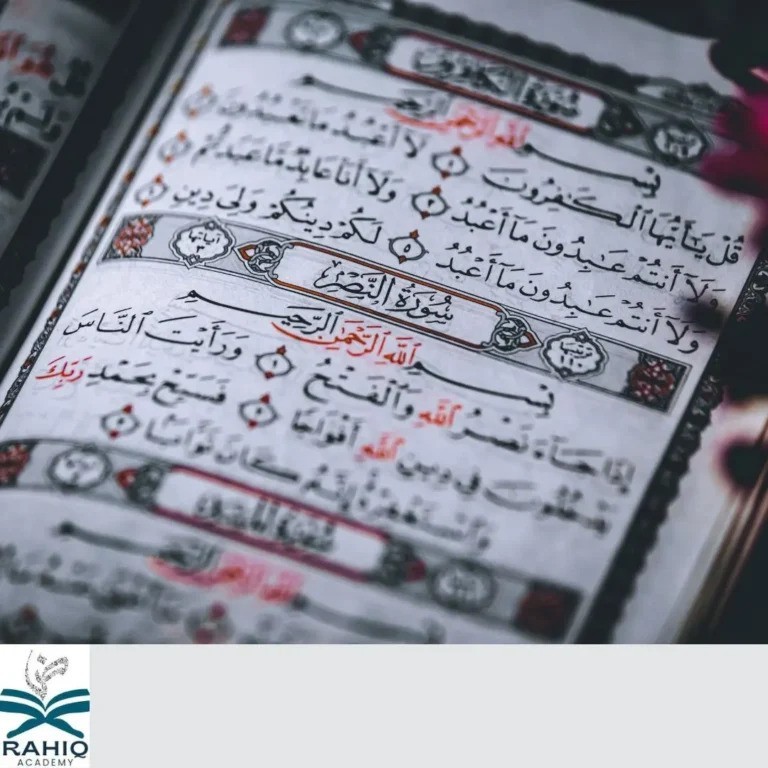 سُورَةُ الكَافِرُونَ
بِسْمِ اللَّهِ الرَّحْمَٰنِ الرَّحِيمِ
قُلْ يَٰٓأَيُّهَا ٱلْكَٰفِرُونَ ١ لَآ أَعْبُدُ مَا تَعْبُدُونَ ٢
وَلَآ أَنتُمْ عَٰبِدُونَ مَآ أَعْبُدُ ٣ وَلَآ أَنَا۠ عَابِدٌ مَّا عَبَدتُّمْ ٤
وَلَآ أَنتُمْ عَٰبِدُونَ مَآ أَعْبُدُ ٥ لَكُمْ دِينُكُمْ وَلِىَ دِينِ ٦
سُورَةُ النَّصْرِ
آياتها ٣
بِسْمِ اللَّهِ الرَّحْمَٰنِ الرَّحِيمِ
إِذَا جَآءَ نَصْرُ ٱللَّهِ وَٱلْفَتْحُ ١ وَرَأَيْتَ ٱلنَّاسَ
يَدْخُلُونَ فِى دِينِ ٱللَّهِ أَفْوَاجًا ٢ فَسَبِّحْ بِحَمْدِ رَبِّكَ
وَٱسْتَغْفِرْهُ إِنَّهُۥ كَانَ تَوَّابًۢا ٣
RAHIQ
ACADEMY